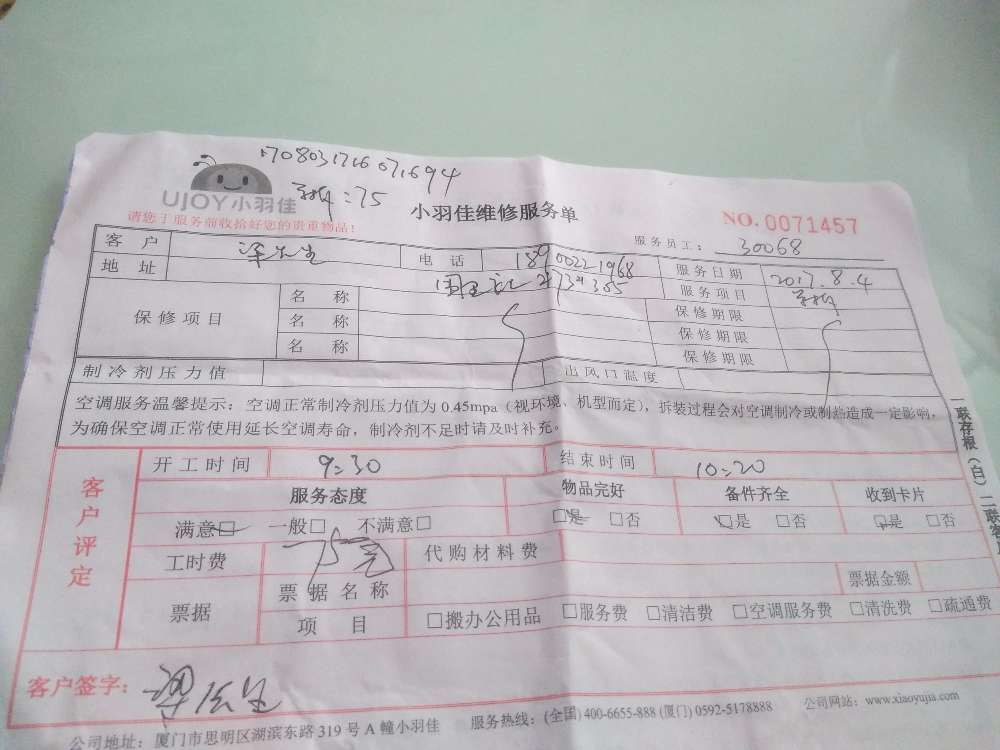 1708031716071694
UJOY小羽佳
:75
小羽佳维修服务单
NO.0071457
请您于服务前收拾好您的贵重物品!
服务员工: 30068
客户 先生 电话 18900221968 服务日期 2017.8.4
地址 服务项目
保修项目 名称 保修期限
名称 保修期限
名称 保修期限
制冷剂压力值 出风口温度
空调服务温馨提示: 空调正常制冷剂压力值为 0.45mpa (视环境、机型而定), 拆装过程会对空调制冷或制热造成一定影响,
为确保空调正常使用延长空调寿命, 制冷剂不足时请及时补充。
一联存根(白)二联客户
客户评定
开工时间 9:30 结束时间 10:20
服务态度 物品完好 备件齐全 收到卡片
满意□ 一般□ 不满意□ □是 □否 □是 □否 □是 □否
工时费 75元 代购材料费
票据 票据名称 票据金额
项目 □搬办公用品 □服务费 □清洁费 □空调服务费 □清洗费 □疏通费
客户签字: 梁先生
公司地址: 厦门市思明区湖滨东路 319 号 A 幢小羽佳 服务热线: (全国) 400-6655-888 (厦门) 0592-5178888 公司网站: www.xiaoyujia.com